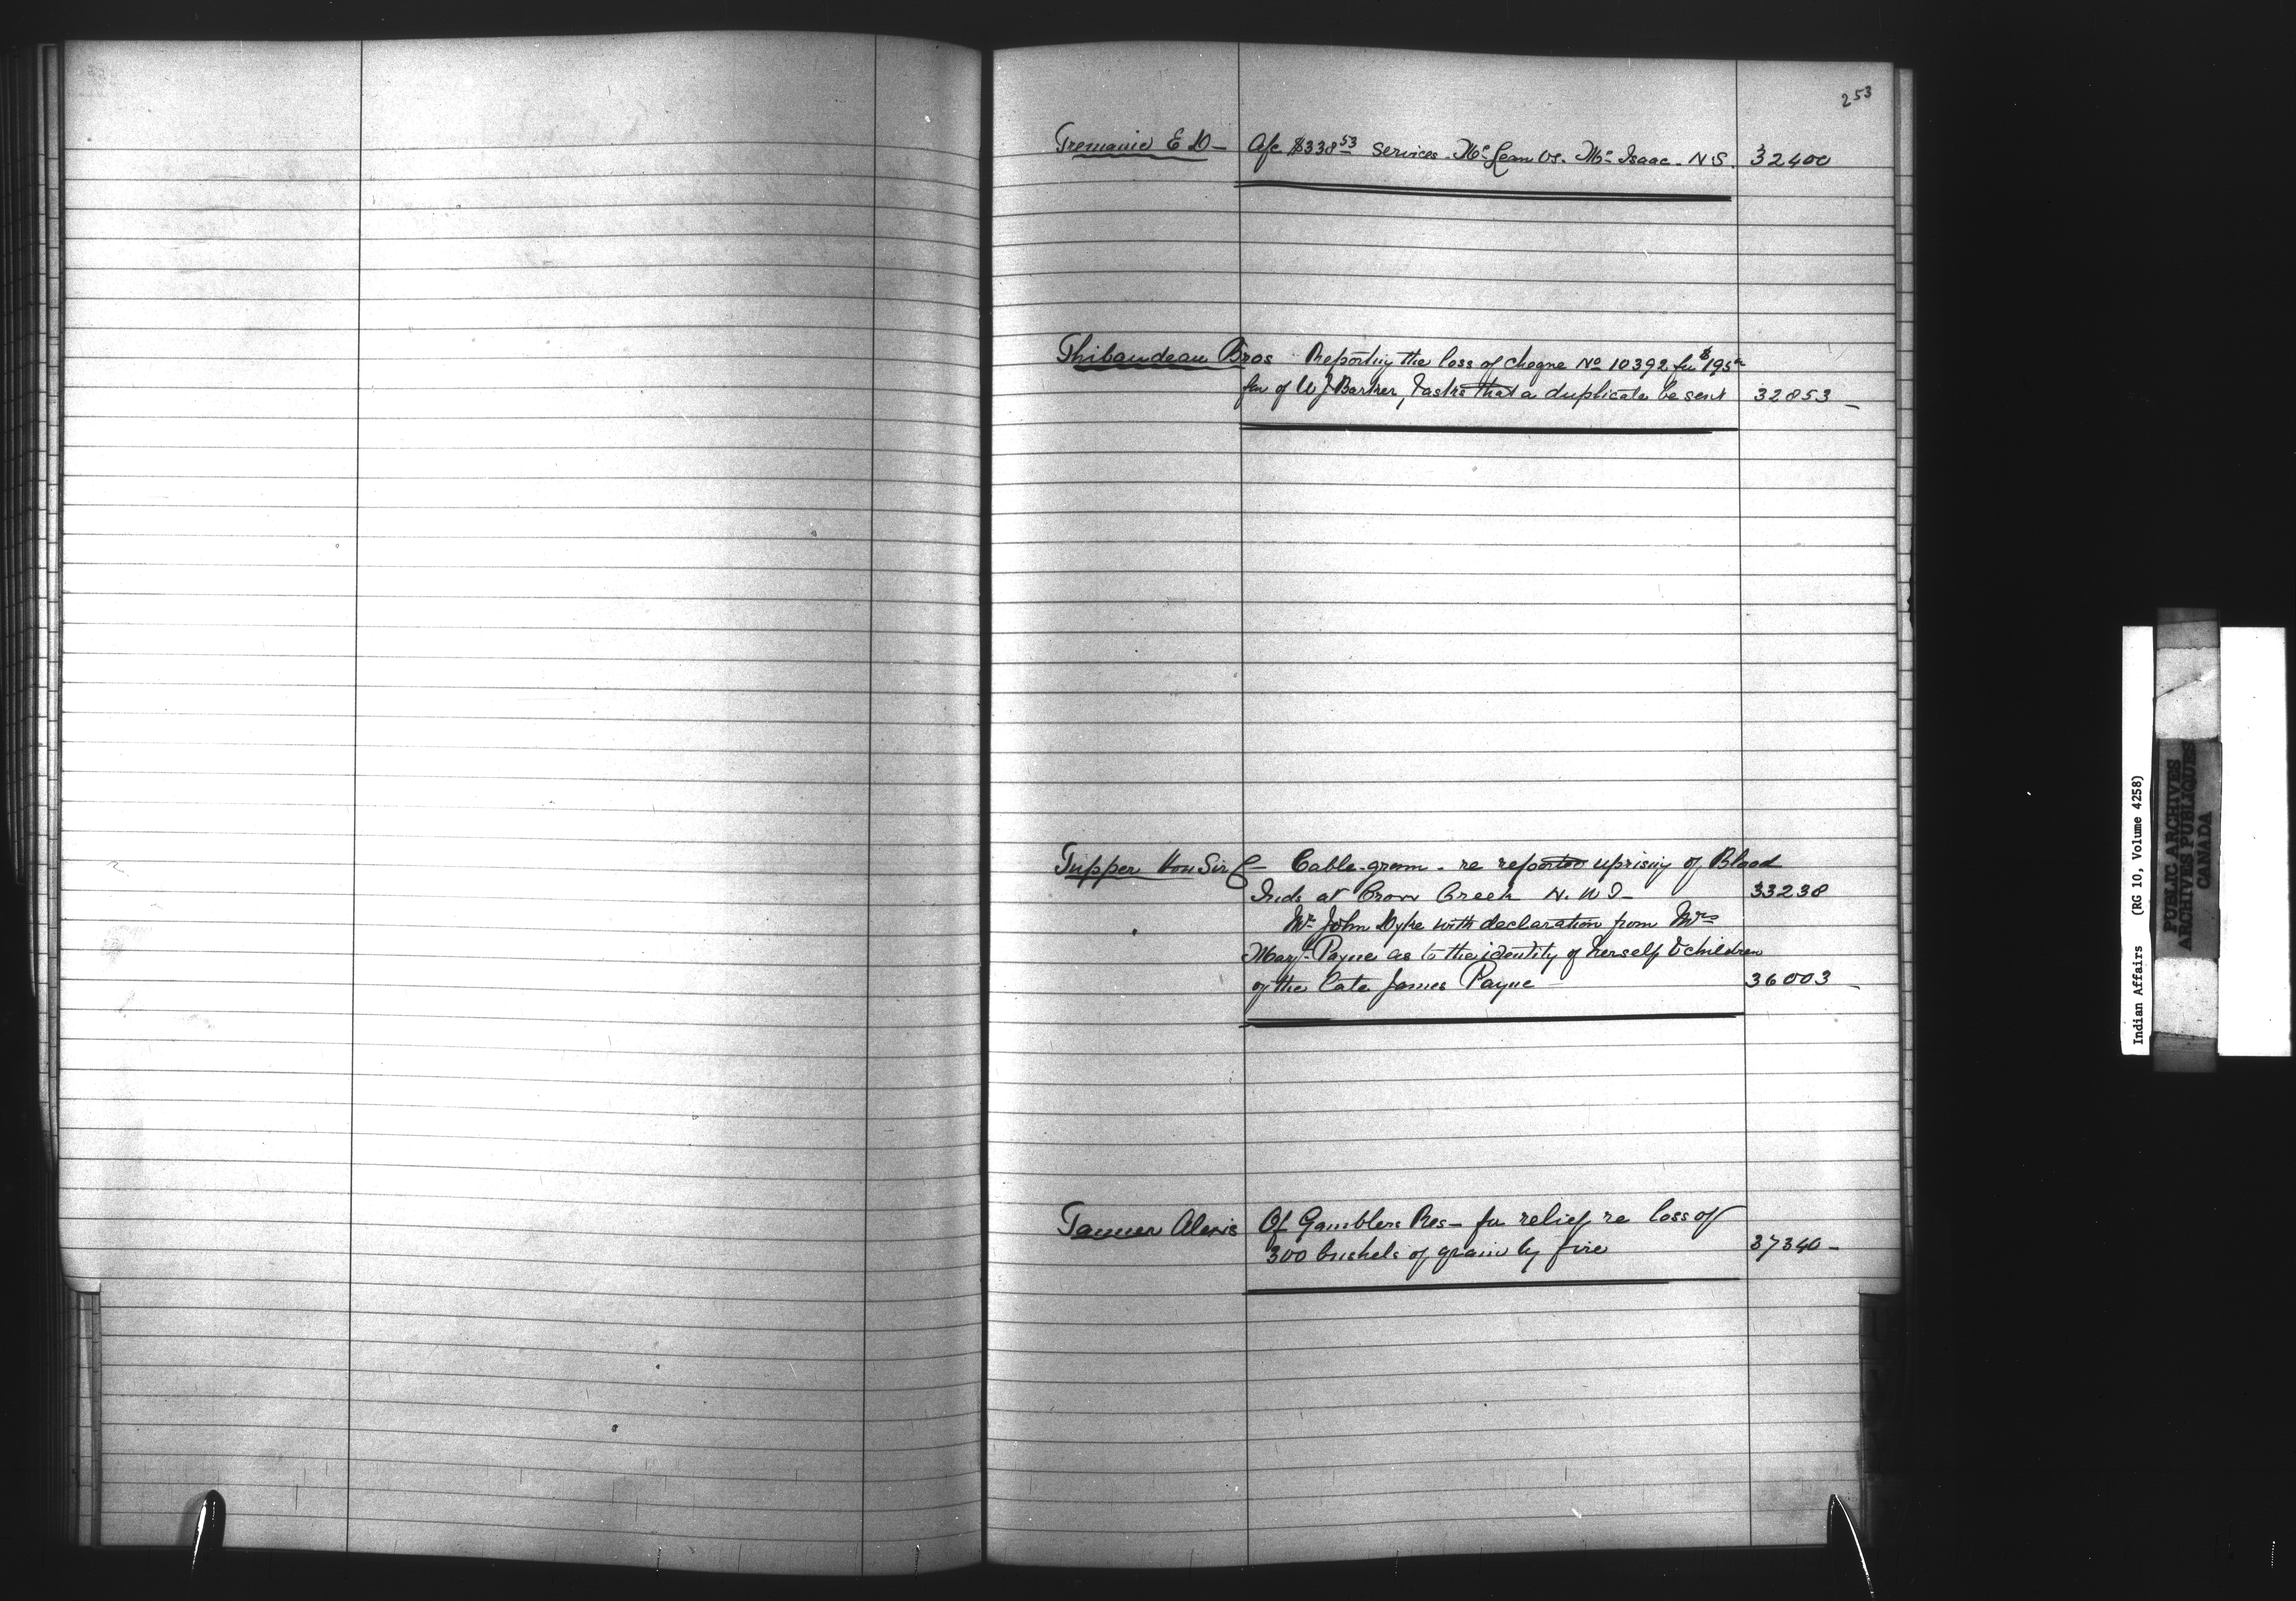 253
Tremaine E D - A/c $338.53 services Mc Lean vs. Mc Isaac - N S. 32400
Thibaudeau Bros Reporting the loss of cheque No 10392 for $195
fav of W J Barker, & asks that a duplicate be sent 32853 -
Tupper Hon Sir C - Cable-gram - re reported uprising of Blood
Inds at Crow Creek N. W T - 33238
Mr John Dyke with declaration from Mrs
Mary Payne as to the identity of herself & children
of the late James Payne 36003 -
Tanner Alexis Of Gamblers Res - for relief re loss of
300 bushels of grain by fire 37340 -
Indian Affairs (RG 10, Volume 4258)
PUBLIC ARCHIVES
ARCHIVES PUBLIQUES
CANADA